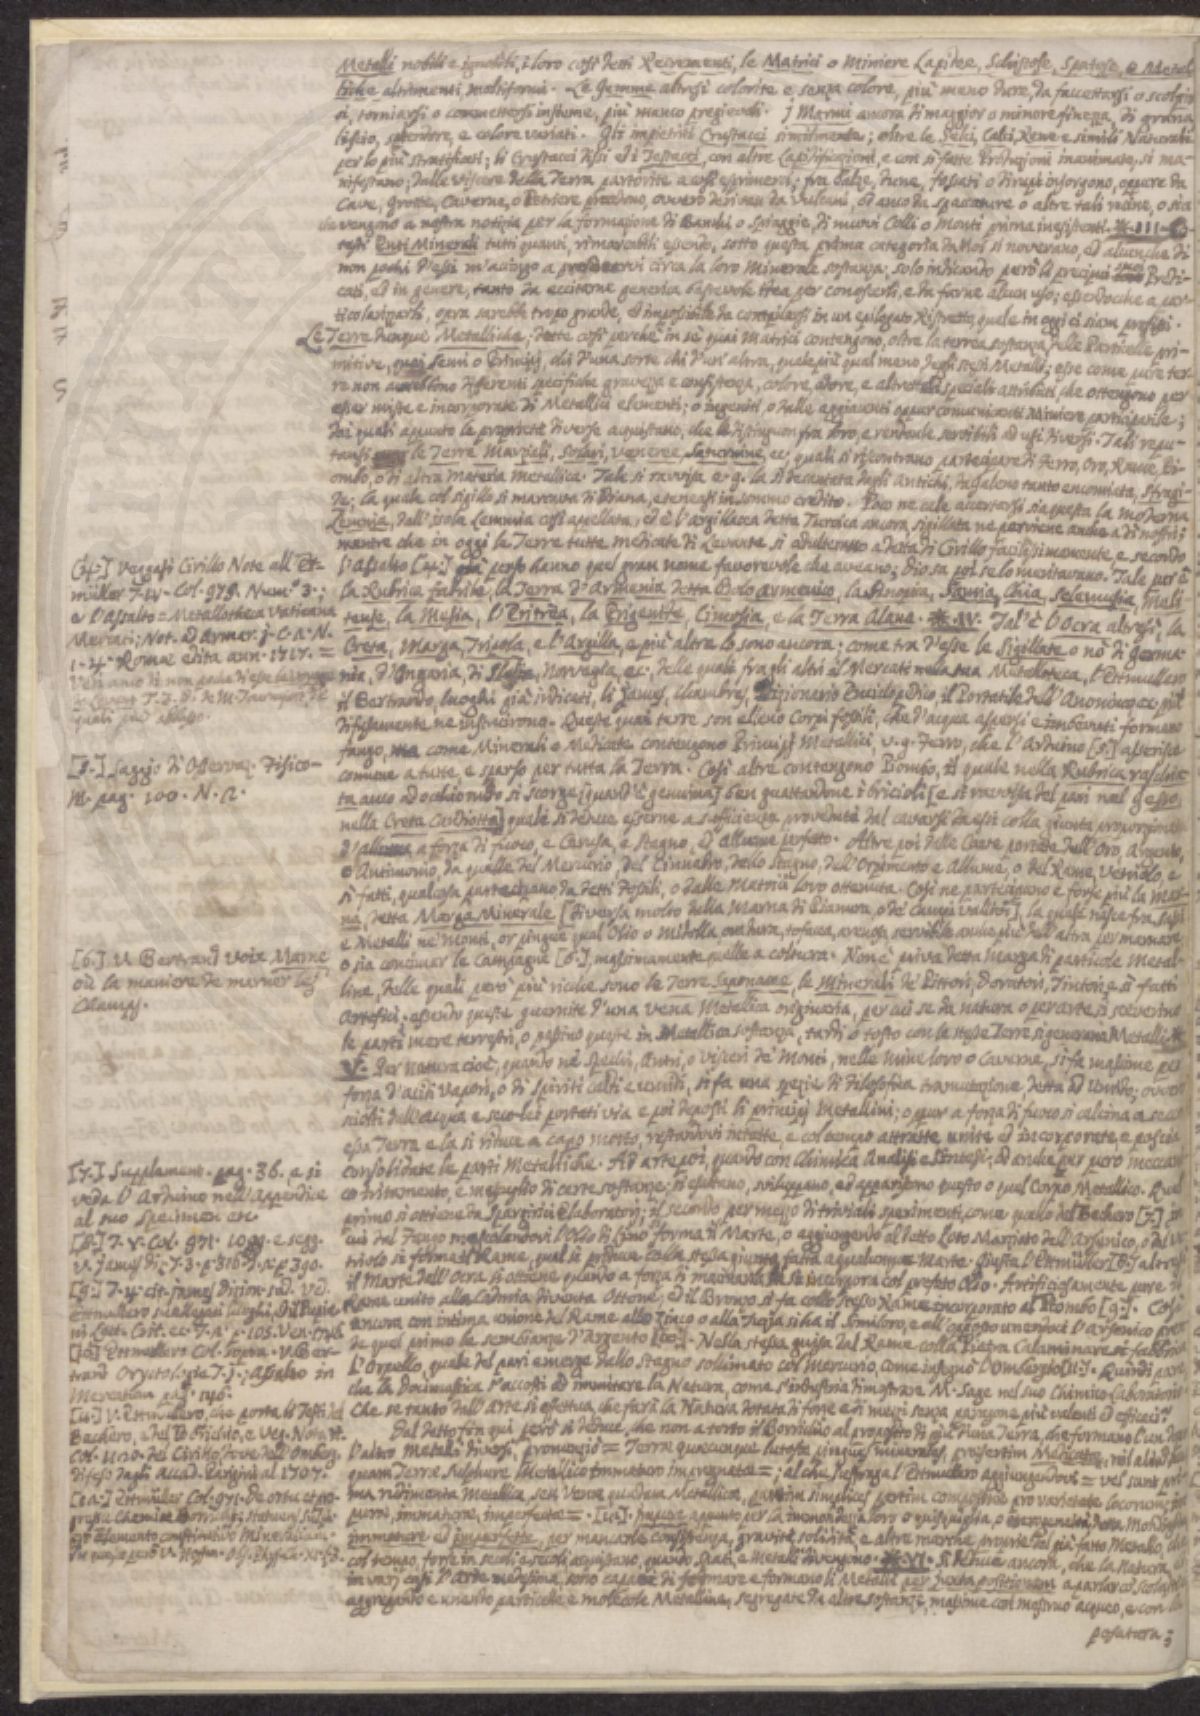 Metalli nobili e ignobili, i loro così detti Recrementi, le Matrici o Miniere Lapidee, Schistose, Spatose, e Metal-
liche altrimenti moltiformi. Le Gemme altresì colorite e senza colore, più meno dure, da faccettarsi o scolpir-
si, torniarsi o commettersi insieme, più manco pregievoli. j Marmi ancora di maggior o minore finezza, di grana
liscio, splendore, e colore variati. Gli impietriti Crustacei similmente; oltre le Selci, Calci, Rene e simili Naturali
per lo più stratificati; li Crustacei essi ed i Testacei, con altre Lapidificazioni, e con sì fatte Produzioni inanimate, si ma-
nifestano, dalle viscere della Terra partorite a così esprimersi; fra balze, dune, fossati o dirupi insorgono, oppure da
Cave, Grotte, Caverne, o Petriere prendono, ovvero da Vulcani, od anco da spaccature o altre tali rovine, o sia
che vengono a nostra notizia per la formazione di Banchi o spiaggie, di nuovi Colli o Monti prima inesistenti. III
testi Enti Minerali tutti quanti, rimarcabili essendo, sotto questa prima categoria da Noi si noverano, ed alcunche di
non pochi d'essi m'accingo a circa la loro Minerale sostanza; solo indicando però li precipui Predi-
cati, ed in genere, tanto da eccitarne generica bastevole Idea per conoscerli, e da farne alcun uso; essendoche a par-
ticolarizarli, opra sarebbe tropo grande, ed impossibile da compilarsi in un epilogato Ristretto, quale in oggi ci siam prefissi.
Le Terre dunque Metalliche; dette così perchè in sè quai Matrici contengono, oltre la terrea sostanza, delle Particelle pri-
mitive, quai Semi o Principj, chi d'una sorte chi d'un' altra, quale più qual meno degli stessi Metalli; esse come pure ter-
re non averebbono differenti specifiche gravezza e consistenza, colore, odore, e altrettali speciali attributi che ottengono per
esser miste e incorporate di Metallici elementi; o ingeniti, o dalle aggiacenti oppur comunicanti Miniere participante;
dai quali appunto le proprietà diverse acquistano, che le distinguon fra loro, e rendonle servibili ad usi diversi. Tali repu-
tansi le Terre Marziali, Solari, Veneree, Saturnine, ec, quali si riscontrano partecipare di Ferro, Oro, Rame, Pi-
ombo, o di altra materia Metallica. Tale si ravvisa e. g. la sì decantata dagli Antichi, da Galeno tanto encomiata, Sfragi-
de; la quale col sigillo si marcava di Diana, e teneasi in sommo credito. Poco ne cale accertarsi sia questa la moderna
Lemnia, dall'isola Lemnia così appellata, ed è l'argillacea detta Turchica ancora sigillata ne perviene anche a dì nostri;
mentre che in oggi le Terre tutte medicate di Levante si adulterano a detta di Cirillo facilissimamente, e secondo
l'Assalto [4.] perso hanno quel gran nome favorevole che aveano; Dio sa poi se lo meritavano. Tale pur è
la Rubrica fabrile, la Terra d'Armenia detta Bolo armenico, la Sinopia, Samia, Chia, Selenusia, Meli-
tense, la Mesia, l'Eritrèa, la Erigentte, Cimosia, e la Terra Alane. IV. Tal'è l'Ocra altresì, la
Creta, Marga, Tripola, e l'Argilla, e più altre lo sono ancora; come tra d'esse le Sigillate o nò di Germa-
nia, d'Ongaria, di Slesia, Norvegia, ec. delle quali fra gli altri il Mercati nella sua Metalloteca, l'Etmullero
il Bertrando, luoghi già indicati, li James, Chambres, Dizionario Enciclopedico, il Portatile dell'Anonimo ec più
difusamente ne instruirono. Queste quai terre son elleno Corpi fossili, che d'acqua aspersi e imbevuti formano
fango, ma come Minerali e Medicate contengono Principj Metallici, v. g. Ferro, che l'Arduino [5.] asserisce
comune a tutte, e sparso per tutta la Terra. Così altre contengono Piombo, il quale nella Rubrica
ta anco ad occhio nudo si scorge [quand'è genuina] ben guattandone i bricioli [e si ravvisa del pari nel gesso,
nella Creta Candiotta] quale si deduce esserne a sufficienza provedute dal cavarsi da essi colla giunta proporzionata
a forza di fuoco, e Cerusa, e Stagno, ed allume perfetto. Altre poi delle Crete portate dell'Oro, Argento,
o Antimonio, da quelle del Mercurio, del Cinnabro, dello Stagno, dell'Orpimento e Allume, o del Rame, Vetriolo, e
sì fatti, qualcosa partecipano da detti Fossili, o dalle Matrici loro ottenuta. Così ne participano e forse più la Mar-
na, detta Marga Minerale [diversa molto dalla Marna di Pianura, o de' Campi valitori], la quale nasce fra Sassi
e Metalli ne' Monti, or pingue qual Olio o Midolla, ora dura, tofacea, arenosa, servibile anche più dell'altra per marnare
o sia concimar le Campagne [6.], massimamente quelle a coltura. Non è priva detta Marga di particole Metal-
line, delle quali però più ricche sono le Terre Saponacee, le Minerali de' Pittori, Doratori, Tintori e sì fatti
Artefici. essendo queste guernite d'una vena Metallica originaria, per cui se da natura o per arte si sceverino
le parti mere terrestri, o passino queste in Metallica sostanza, tardi o tosto con le stesse Terre si generano Metalli.
V. Per natura cioè, quando nè Specchi, Antri, o visceri de' Monti, nelle Mine loro o Caverne, si fa massime per
forza d'acidi vapori, o di Spiriti caldi e umidi, si fa una spezie di Filosofica tramutazione detta ad Umido; ovvero
sciolti dall'acqua e seco-lei portati via e poi deposti li principj Metallini; o ppur a forza di fuoco si calcina a secco
essa Terra e la si riduce a capo morto, restandovi intatte, e col tempo attratte unite ed incorporate, e poscia
consolidate le parti Metalliche. Ad arte poi, quando con Chimica Analisi e Sintesi; od anche per puro mecani-
co tritamento, e mescuglio di certe sostanze; si esplorano, sviluppano, ed appariscono questo o quel Corpo Metallico. Quel
primo si ottiene da Spargirici Elaboratorj; il secondo per mezzo di triviali sperimenti, come quello del Bechero [7.] in
cui del Fango mescolandovi l'Olio di Lino forma il Marte, o aggiungendo al detto Loto Marziato dell'Arsenico, o del ve-
triolo si forma il Rame, qual si produce colla stessa giunta fatta a qualunque Marte. Giusta l'Ettmüller [8.] altresì
il Marte dell'Ocra si ottiene quando a forza di macinarla si incorpora col prefato Olio. Artificiosamente pure il
Rame unito alla Cadmia diventa Ottone; ed il Bronzo si fa collo stesso Rame incorporato al Piombo [9.]. Così
ancora con intima unione del Rame allo Zinco o alla Tuzia si ha il Similoro, e all'opposto unendoci l'arsenico
de quel primo le sembianze d'Argento [10.]. Nella stessa guisa dal Rame colla Pietra Calaminare si fabbrica
l'Orpello, quale del pari emerge dallo Stagno sollimato col Mercurio, come insegnò l'Ombergio [11.]. Quindi pare
che la Docimastica s'accosti ad immitare la Natura, come s'industria dimostrare M. Sage nel suo Chimico Laboratorio.
Che se tanto dall'Arte si effettua, che farà la Natura dotata di forze e di mezzi senza paragone più valenti ed efficaci?
Dal dettofin quì però si deduce, che non a torto il Borrichio al proposito di più d'una Terra, che formano l'un dall'
l'altro Metalli diversi, pronunziò = Terra quæcunque lutosa pinguis mineralis, præsertim Medicata, nil aliud
quam Terra Sulphure Metallico immaturo impregnata =; al che suffraga l'Ettmullero aggiungendovi = vel sunt pri-
ma rudimenta Metallica, seu Venæ quædam Metallicæ, partim simplices partim compositæ pro varietate locorum
puræ, immaturæ, imperfectæ = [12.]. Impure appunto per la immondezza loro o quisquiglia, o eterogeneità detta Mondiglia
immature ed imperfette, per mancarle consistenza, gravità, solidità, e altre marche proprie del già fatto Metallo, che
col tempo, forse in secoli e secoli acquistano, quando Spati, e Metalli divengono. VI. Si deduce ancora, che la Natura ed
in varj casi l'arte medesima, sono capaci di formare e formano li Metalli per juxta positionem a parlar co' scolastici
aggregando e unendo particole e molecole Metalline, segregate da altre sostanze, massime con mestruo acqueo, e con
posatura;
[4.] Veggasi Cirillo Note all'Et-
müller T. IV. Col. 979. Num.° 3.;
e l'Assalto = Metallotheca Vaticana
Mercati; Not. ad Armar. j. C. 2. N.
1. 4. Romæ edita ann. 1717. =
T. I. di M. Tournefort
quali più abbasso.
[5.] Saggio di Osservaz. Fisico-
M. pag. 100. N. 2.
[6.] V. Bertrand voix Marne
où la maniere de marner les
Champs.
[7.] Supplement. pag. 36. e si
veda l'Arduino nell'Appendice
al suo Specimen ec.
[8.] T. V. Col. 971. 1099. e segg.
v. James di; T. 3. p 316. p 390.
[9.] T. 4. cit. James Dizion. sud. ved.
Ettmullero suallegati luoghi, di Pupie
in Lett. Crit. ec. T. 2. p. 105. Ven. 1746.
[10.] Ettmullero Col. sopra. v. Ber-
trand Oryctologie T. j.; Assalto in
Mercatum pag. 126.
[11.] v. Ettmullero, che porta li Testi del
Bechero, e del Borrichio, e Veg. Note
Col. 1120. del Cirillo, dove dell'Omberg.
difeso dagli Accad. Parigini al 1707.
[12.] Ettmüller Col. 971. De ortu et pro-
gressu Chemiæ Borrichij; statuens sulfu-
reo elemento constituitivo Mineralium.